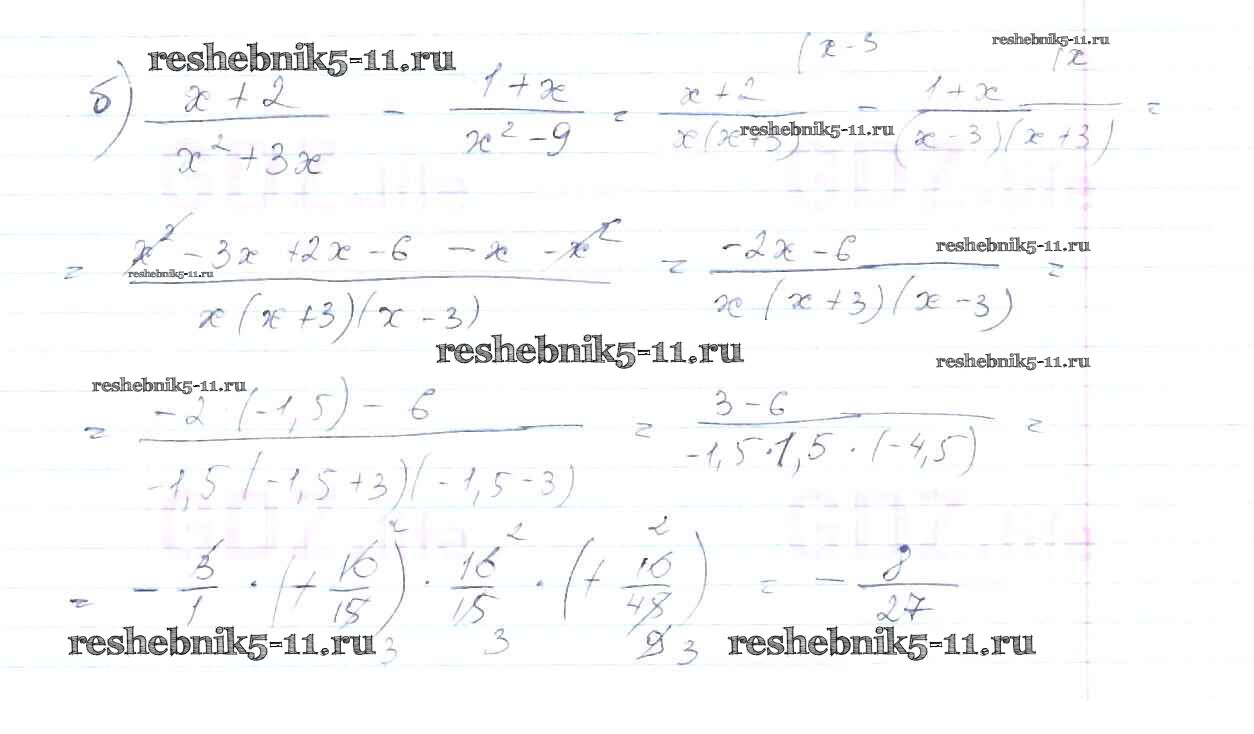 reshebnik5-11.ru
(x - 3 reshebnik5-11.ru (x
б) (x + 2)/(x² + 3x) - (1 + x)/(x² - 9) = (x + 2)/(x(x+3)) - (1 + x)/((x - 3)(x + 3)) =
reshebnik5-11.ru
= (x² - 3x + 2x - 6 - x - x²)/(x(x+3)(x - 3)) = (-2x - 6)/(x(x+3)(x-3)) =
reshebnik5-11.ru reshebnik5-11.ru
reshebnik5-11.ru reshebnik5-11.ru
reshebnik5-11.ru
= (-2·(-1,5) - 6)/(-1,5(-1,5+3)(-1,5-3)) = (3 - 6)/(-1,5·1,5·(-4,5)) =
= - 3/1 · (+ 10/15) · 10/15 · (+ 10/45) = - 8/27
2 2 2
3 3 9 3
reshebnik5-11.ru reshebnik5-11.ru